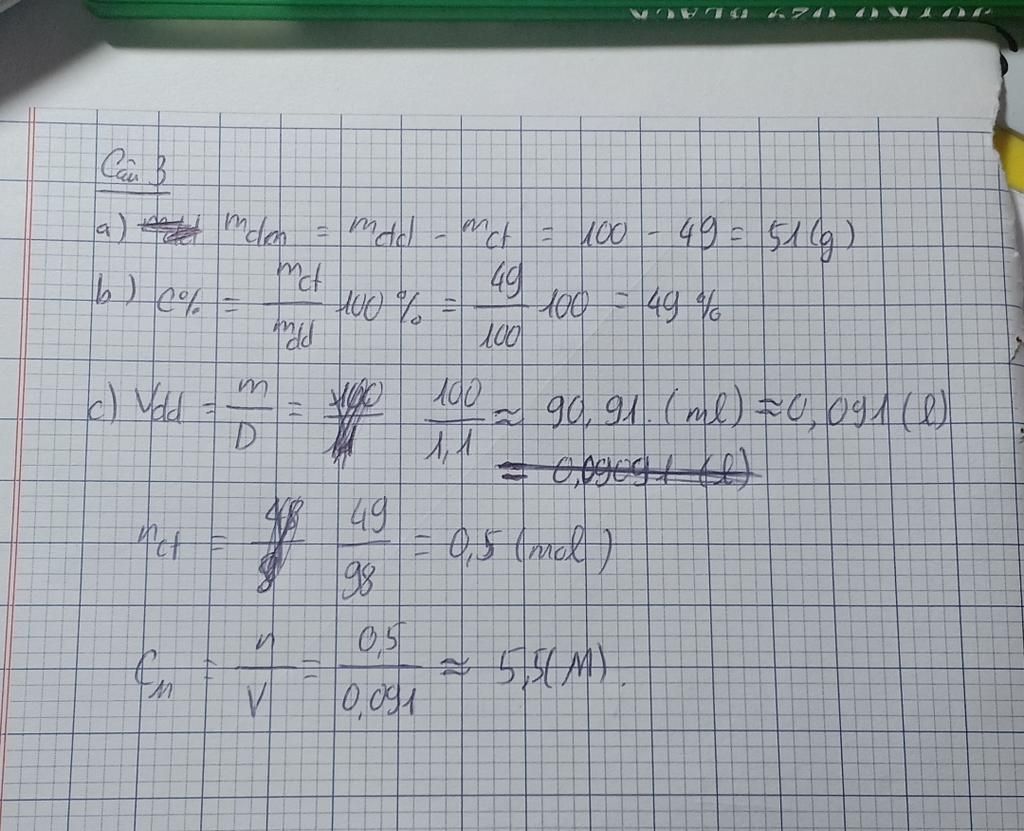 Câu 3
a) mdm = mdd - mct = 100 - 49 = 51(g)
b) C% = mct/mdd 100% = 49/100 100 = 49%
c) Vdd = m/D = 100/1,1 ≈ 90,91 (ml) ≈ 0,091(l)
= 0,09091 (l)
nct = 49/98 = 0,5 (mol)
CM = n/V = 0,5/0,091 ≈ 5,5(M).